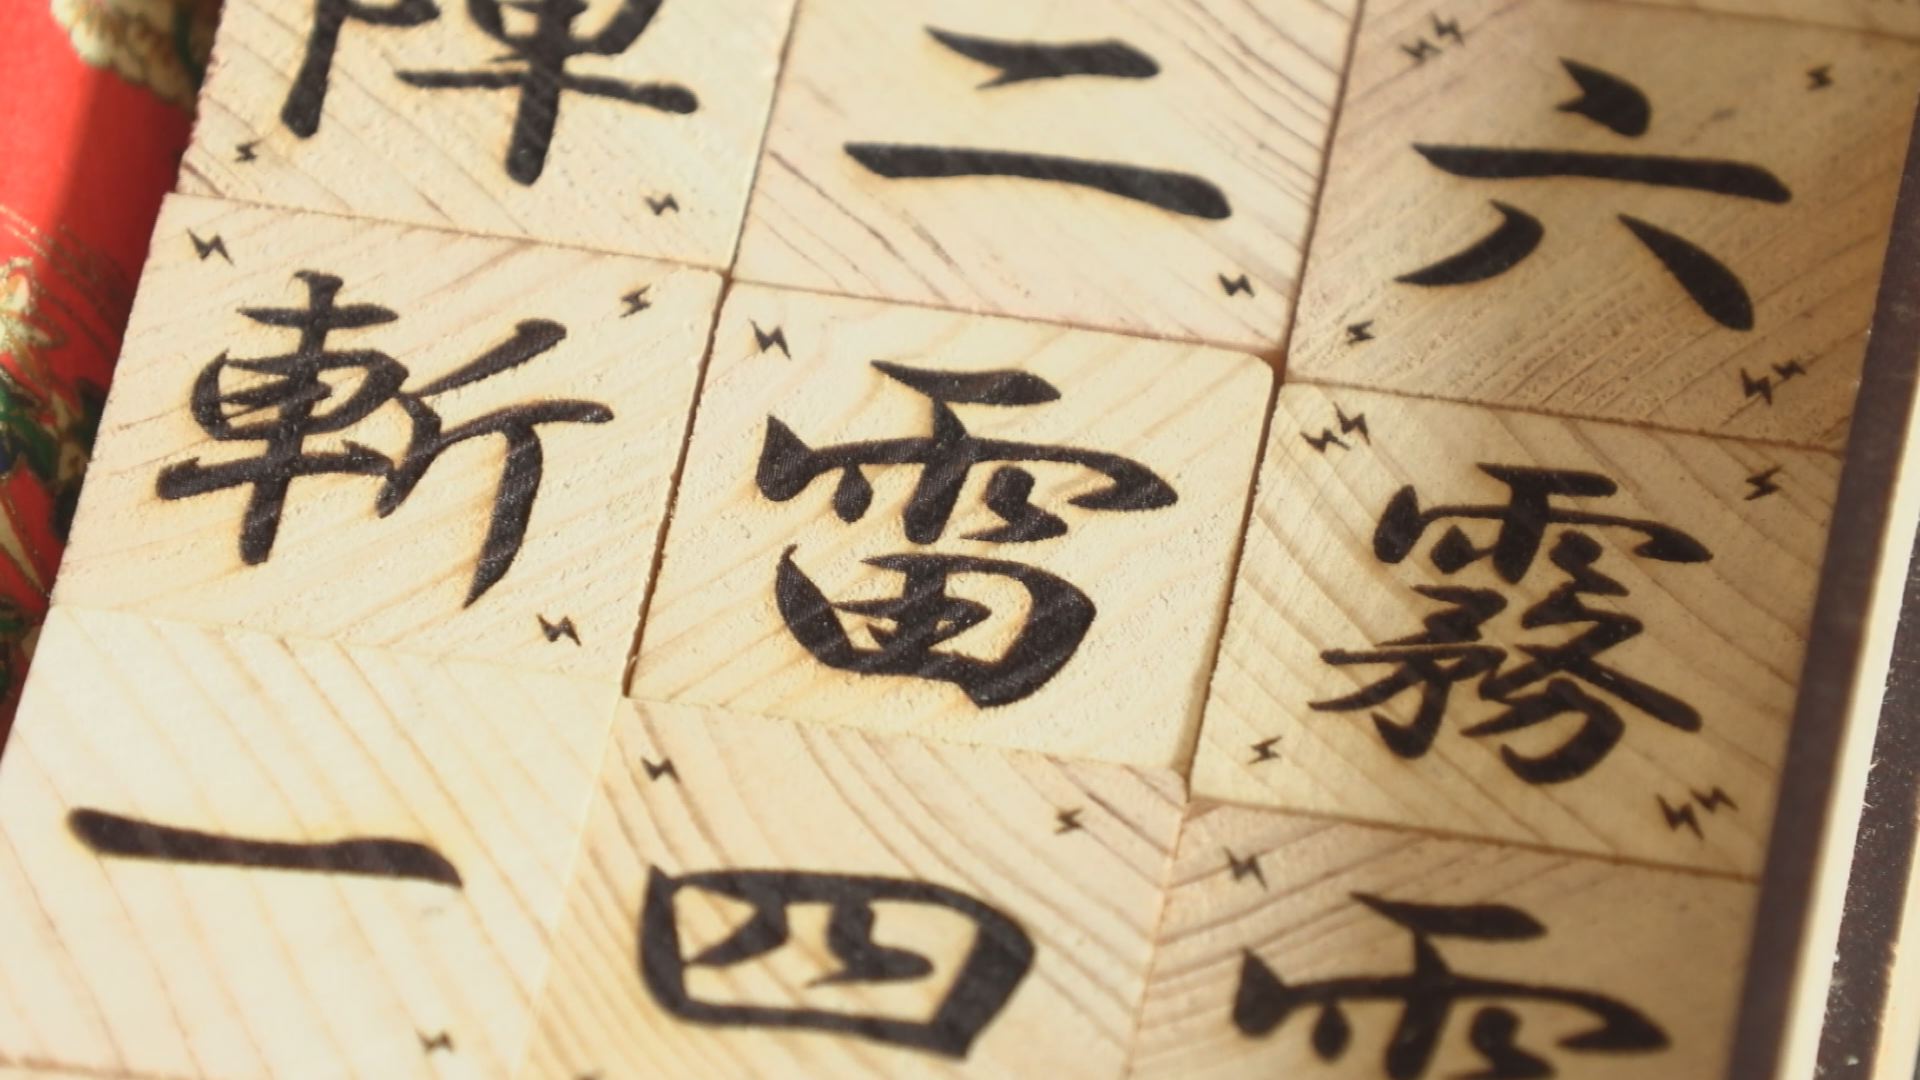 陣 二 六
斬 雷 霧
一 四